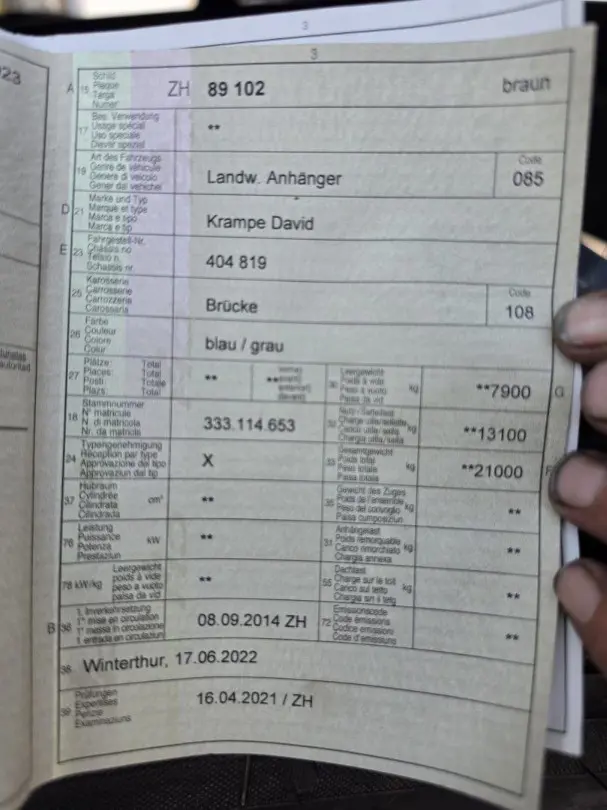 3
3
023
A 15 Schild Plaque Targa Numer ZH 89 102 braun
17 Bes. Verwendung Usage spécial Uso speciale Diever spezial **
19 Art des Fahrzeugs Genre de véhicule Genere di veicolo Gener dal vehichel Landw. Anhänger Code 085
D 21 Marke und Typ Marque et type Marca e tipo Marca e tip Krampe David
E 23 Fahrgestell-Nr. Châssis no Telaio n. Schassis nr. 404 819
25 Karosserie Carrosserie Carrozzeria Carossaria Brücke Code 108
26 Farbe Couleur Colore Colur blau / grau
27 Plätze: Total Places: Total Posti: Totale Plazs: Total ** ** 30 Leergewicht Poids à vide Peso a vuoto Paisa da vid kg **7900 G
18 Stammnummer N° matricule N. di matricola Nr. da matricla 333.114.653 kg **13100
24 Typengenehmigung Réception par type Approvazione del tipo Approvaziun dal tip X 33 Gesamtgewicht Poids total Peso totale Paisa totala kg **21000 F
37 Hubraum Cylindrée Cilindrata Cilindrada cm³ ** 35 Gewicht des Zuges Poids de l'ensemble Peso del convoglio Paisa cumposiziun kg **
76 Leistung Puissance Potenza Prestaziun kW ** 31 Anhängelast Poids remorquable Carico rimorchiato Chargia annexa kg **
78 kW/kg Leergewicht poids à vide peso a vuoto paisa da vid ** 55 Dachlast Charge sur le toit Carico sul tetto Chargia sin il tetg kg **
B 36 1. Inverkehrsetzung 1re mise en circulation 1a messa in circolazione 1. entrada en circulaziun 08.09.2014 ZH 72 Emissionscode Code émissions Codice emissioni Code d'emissiuns **
38 Winterthur, 17.06.2022
39 Prüfungen Expertises Perizie Examinaziuns 16.04.2021 / ZH